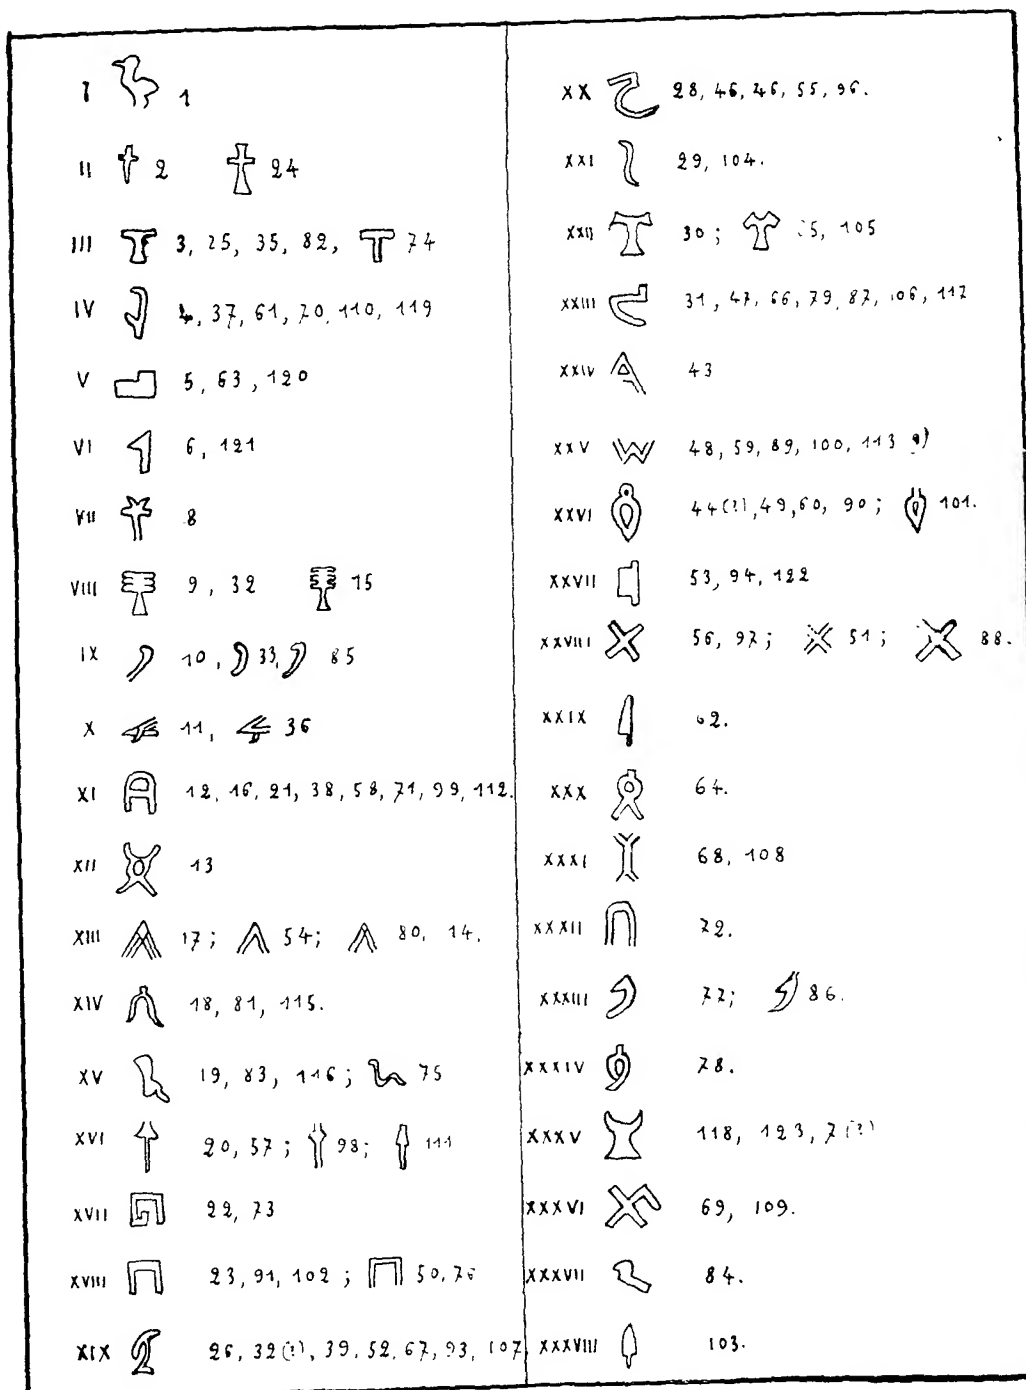 I 1
II 2 24
III 3, 25, 35, 82, 74
IV 4, 37, 61, 70, 110, 119
V 5, 63, 120
VI 6, 121
VII 8
VIII 9, 32 15
IX 10, 33, 85
X 11, 36
XI 12, 16, 21, 38, 58, 71, 99, 112.
XII 13
XIII 17; 54; 80, 14.
XIV 18, 81, 115.
XV 19, 83, 116; 75
XVI 20, 57; 98; 111
XVII 22, 73
XVIII 23, 91, 102; 50, 76
XIX 26, 32(?), 39, 52, 67, 93, 107
XX 28, 46, 46, 55, 96.
XXI 29, 104.
XXII 30; 105
XXIII 31, 47, 66, 79, 87, 106, 117
XXIV 43
XXV 48, 59, 89, 100, 113
XXVI 44(?), 49, 60, 90; 101.
XXVII 53, 94, 122
XXVIII 56, 97; 51; 88.
XXIX 62.
XXX 64.
XXXI 68, 108
XXXII 72.
XXXIII 77; 86.
XXXIV 78.
XXXV 118, 123, 7(?)
XXXVI 69, 109.
XXXVII 84.
XXXVIII 103.